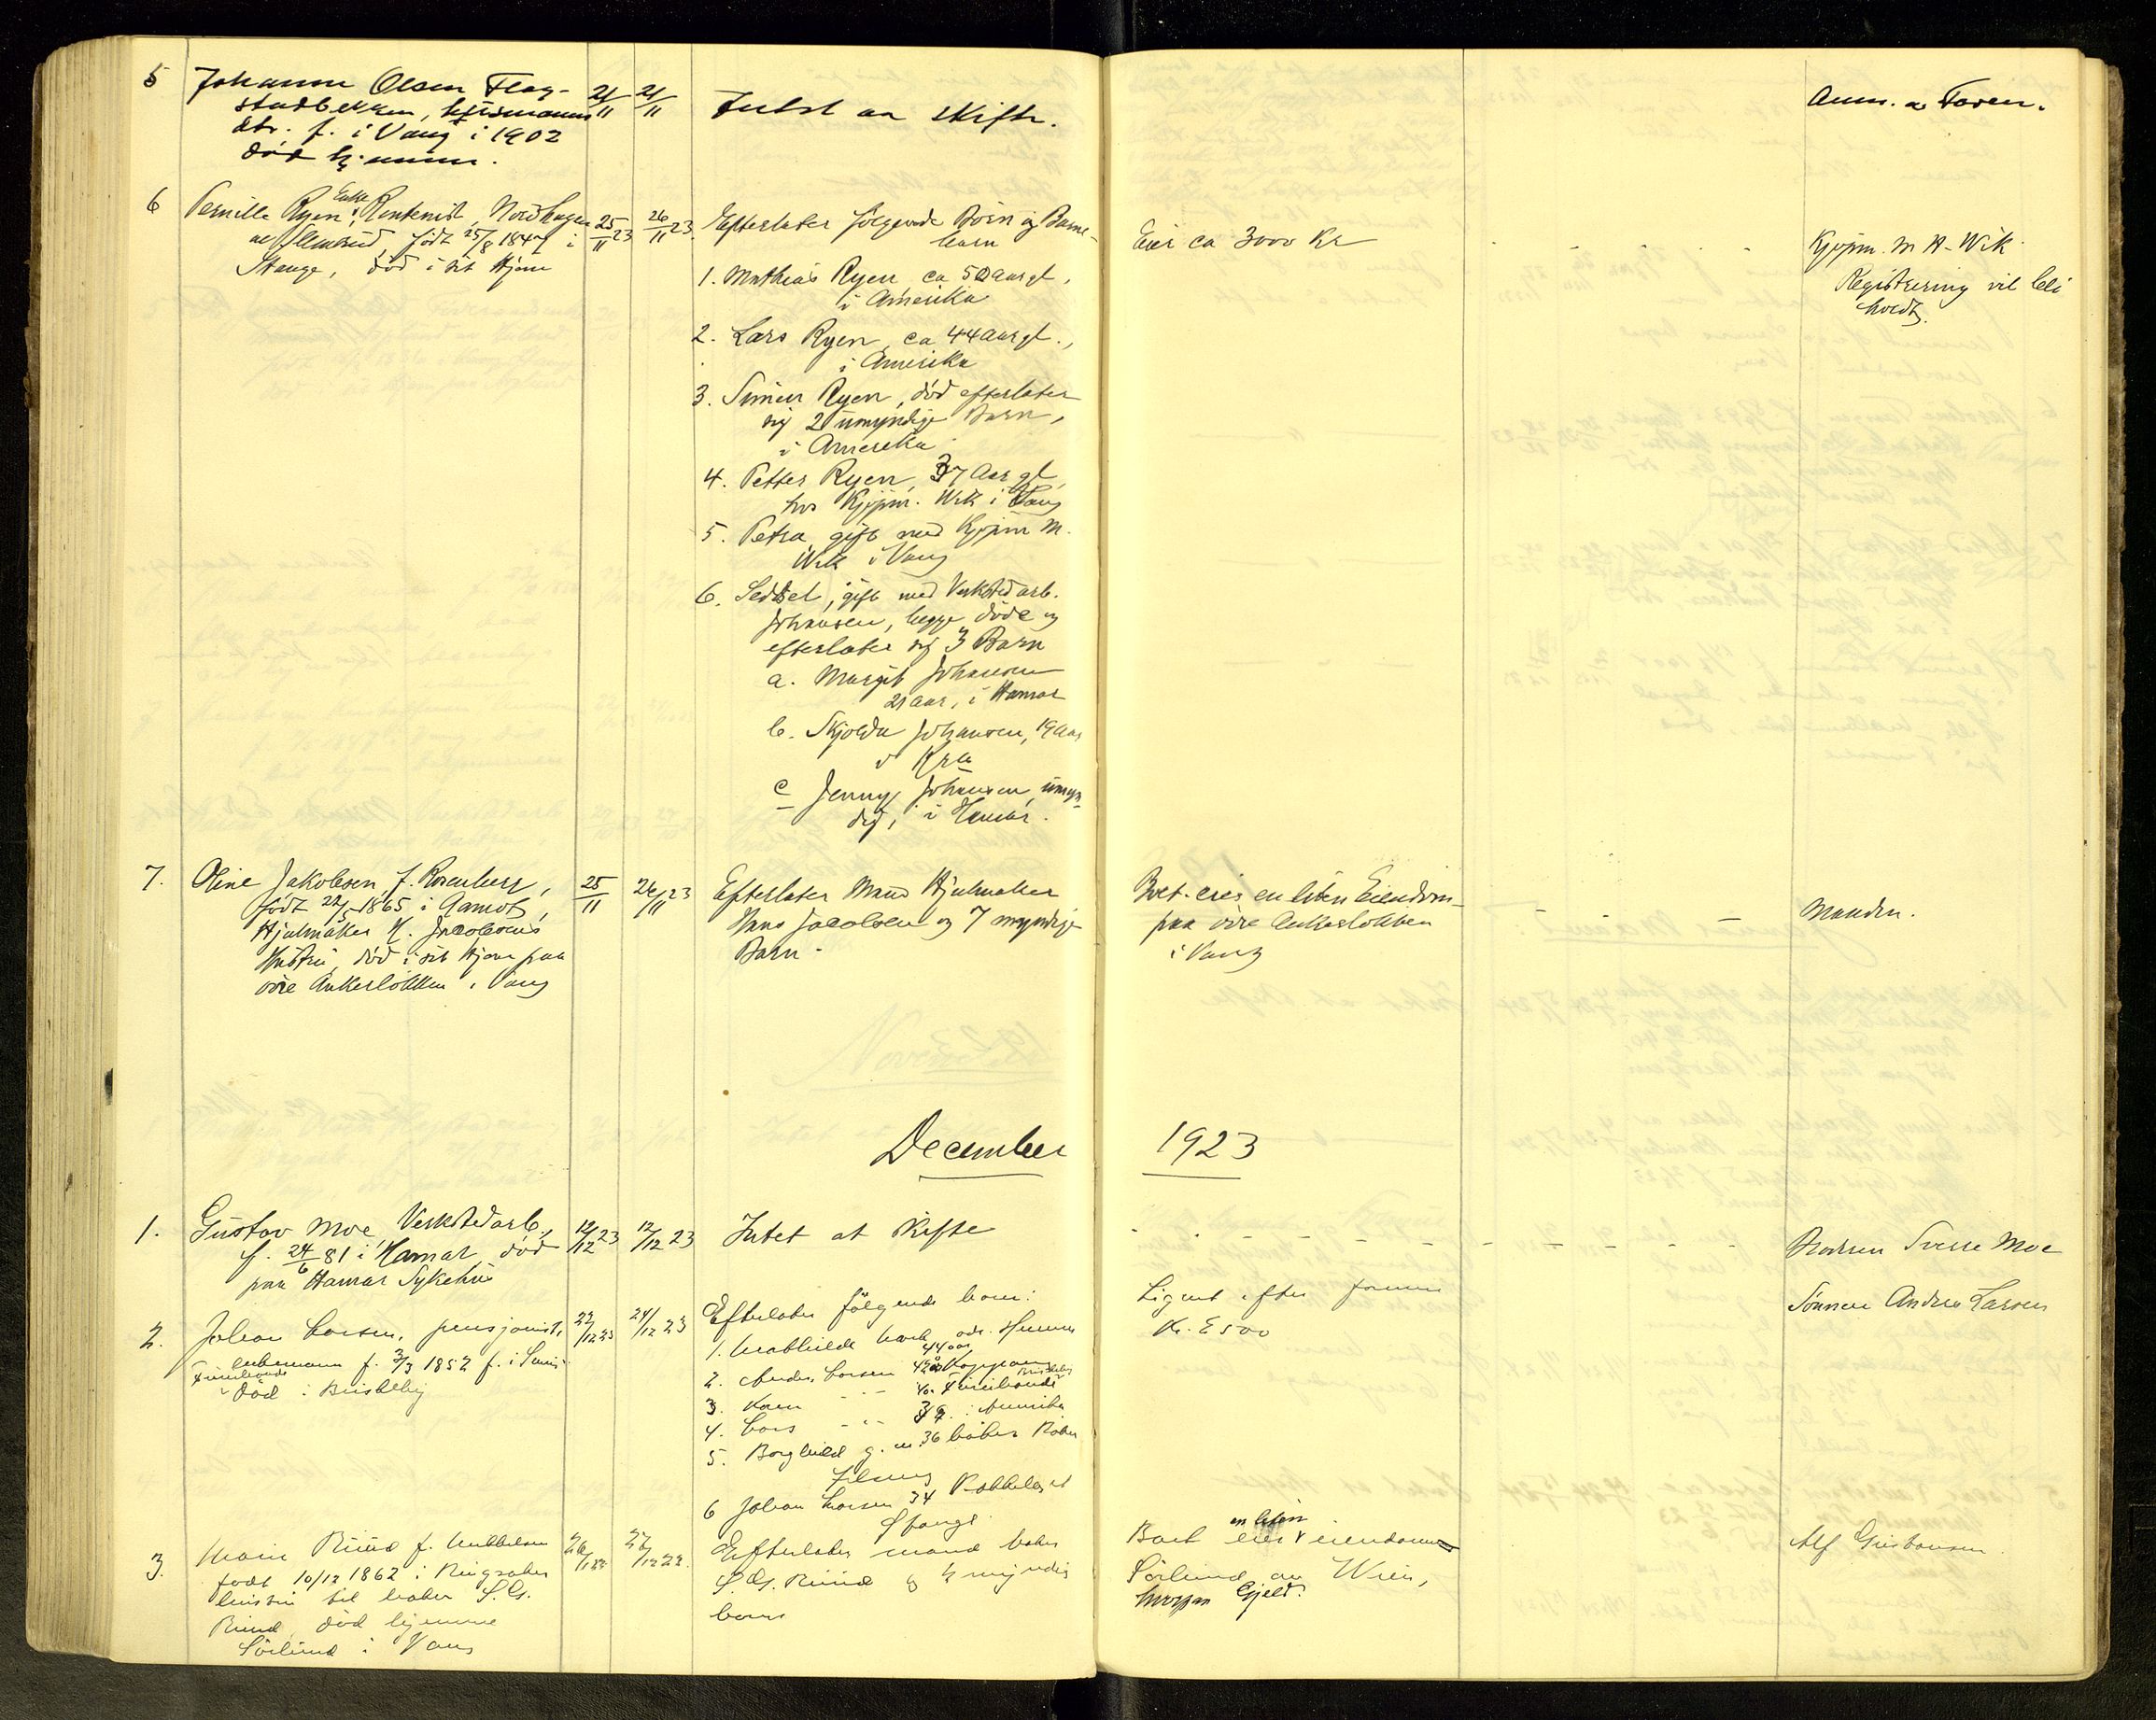 5 Johanne Olsen Flag- 21/11 21/11 Intet aa skifte. Anm. a Faren.
stadbekken, husmanns
dtr. f. i Vang i 1902
død hjemme.
6 Pernille Ryen, Enke Rentenist, Nordhagen 25/11 23 26/11 23. Efterlater følgende Børn og Barne- Eier ca 3000 Kr Kjøpm. M A. Wik
født 25/8 1847 i barn Registrering vil bli
Stange, død i sit Hjem holdt.
1. Mathias Ryen ca 50 aar gl.,
i Amerika
2. Lars Ryen, ca 44 aar gl.,
i Amerika
3. Simen Ryen, død efterlater
sig 2 umyndige Barn,
i Amerika
4. Petter Ryen, 37 Aar gl,
hos Kjøpm. Wik i Vang
5. Petra, gift med Kjøpm M.
Wik i Vang
6. Sedsel, gift med Verkstedarb.
Johansen, begge døde og
efterlater sig 3 Barn
a. Margit Johansen
21 aar, i Hamar
b. Skjolda Johansen, 19 Aar
i Kra
c Jenny Johansen, umyn-
dig, i Hamar.
7. Oline Jakobsen, f. Rosenberg, 25/11 26/11 23 Efterlater Mand Hjulmaker Boet eier en liten Eiendom Manden.
født 22/5 1865 i Aamot, Hans Jacobsen og 7 myndige paa øvre Ankerløkken
Hjulmaker H. Jacobsens Barn. i Vang
Hustru, død i sit Hjem paa
øvre Ankerløkken i Vang
December 1923
1. Gustav Moe, Verkstedarb., 12/12 23 12/12 23 Intet at skifte Broren Sverre Moe
f. 24/6 81 i Hamar, død
paa Hamar Sykehus
2. Johan Larsen, pensjonist, 22/12 23 24/12 23 Efterlater følgende barn: Lignet efter formue Sønnen Anders Larsen
f. 3/3 1852 f. i Kr. 2500
død i Brisleby
1. Mathilde 44 aar Hamar
2. Anders Larsen 42 aar
3. Karen 40
4. Lars Amerika
5. Borghild g. m. 36 baker
6 Johan Larsen 34
Stange
3. Marie Ruud f. Mikkelsen 26/12 27/12 Efterlater mand baker Boet eier en liten eiendom Alf Gustavsen
født 10/12 1862 i Ringsaker S. G. Ruud og 4 myndig Sørlund av Wien,
hustru til baker S. G. barn hvorpaa Gjeld.
Ruud, død hjemme
Sørlund i Vang